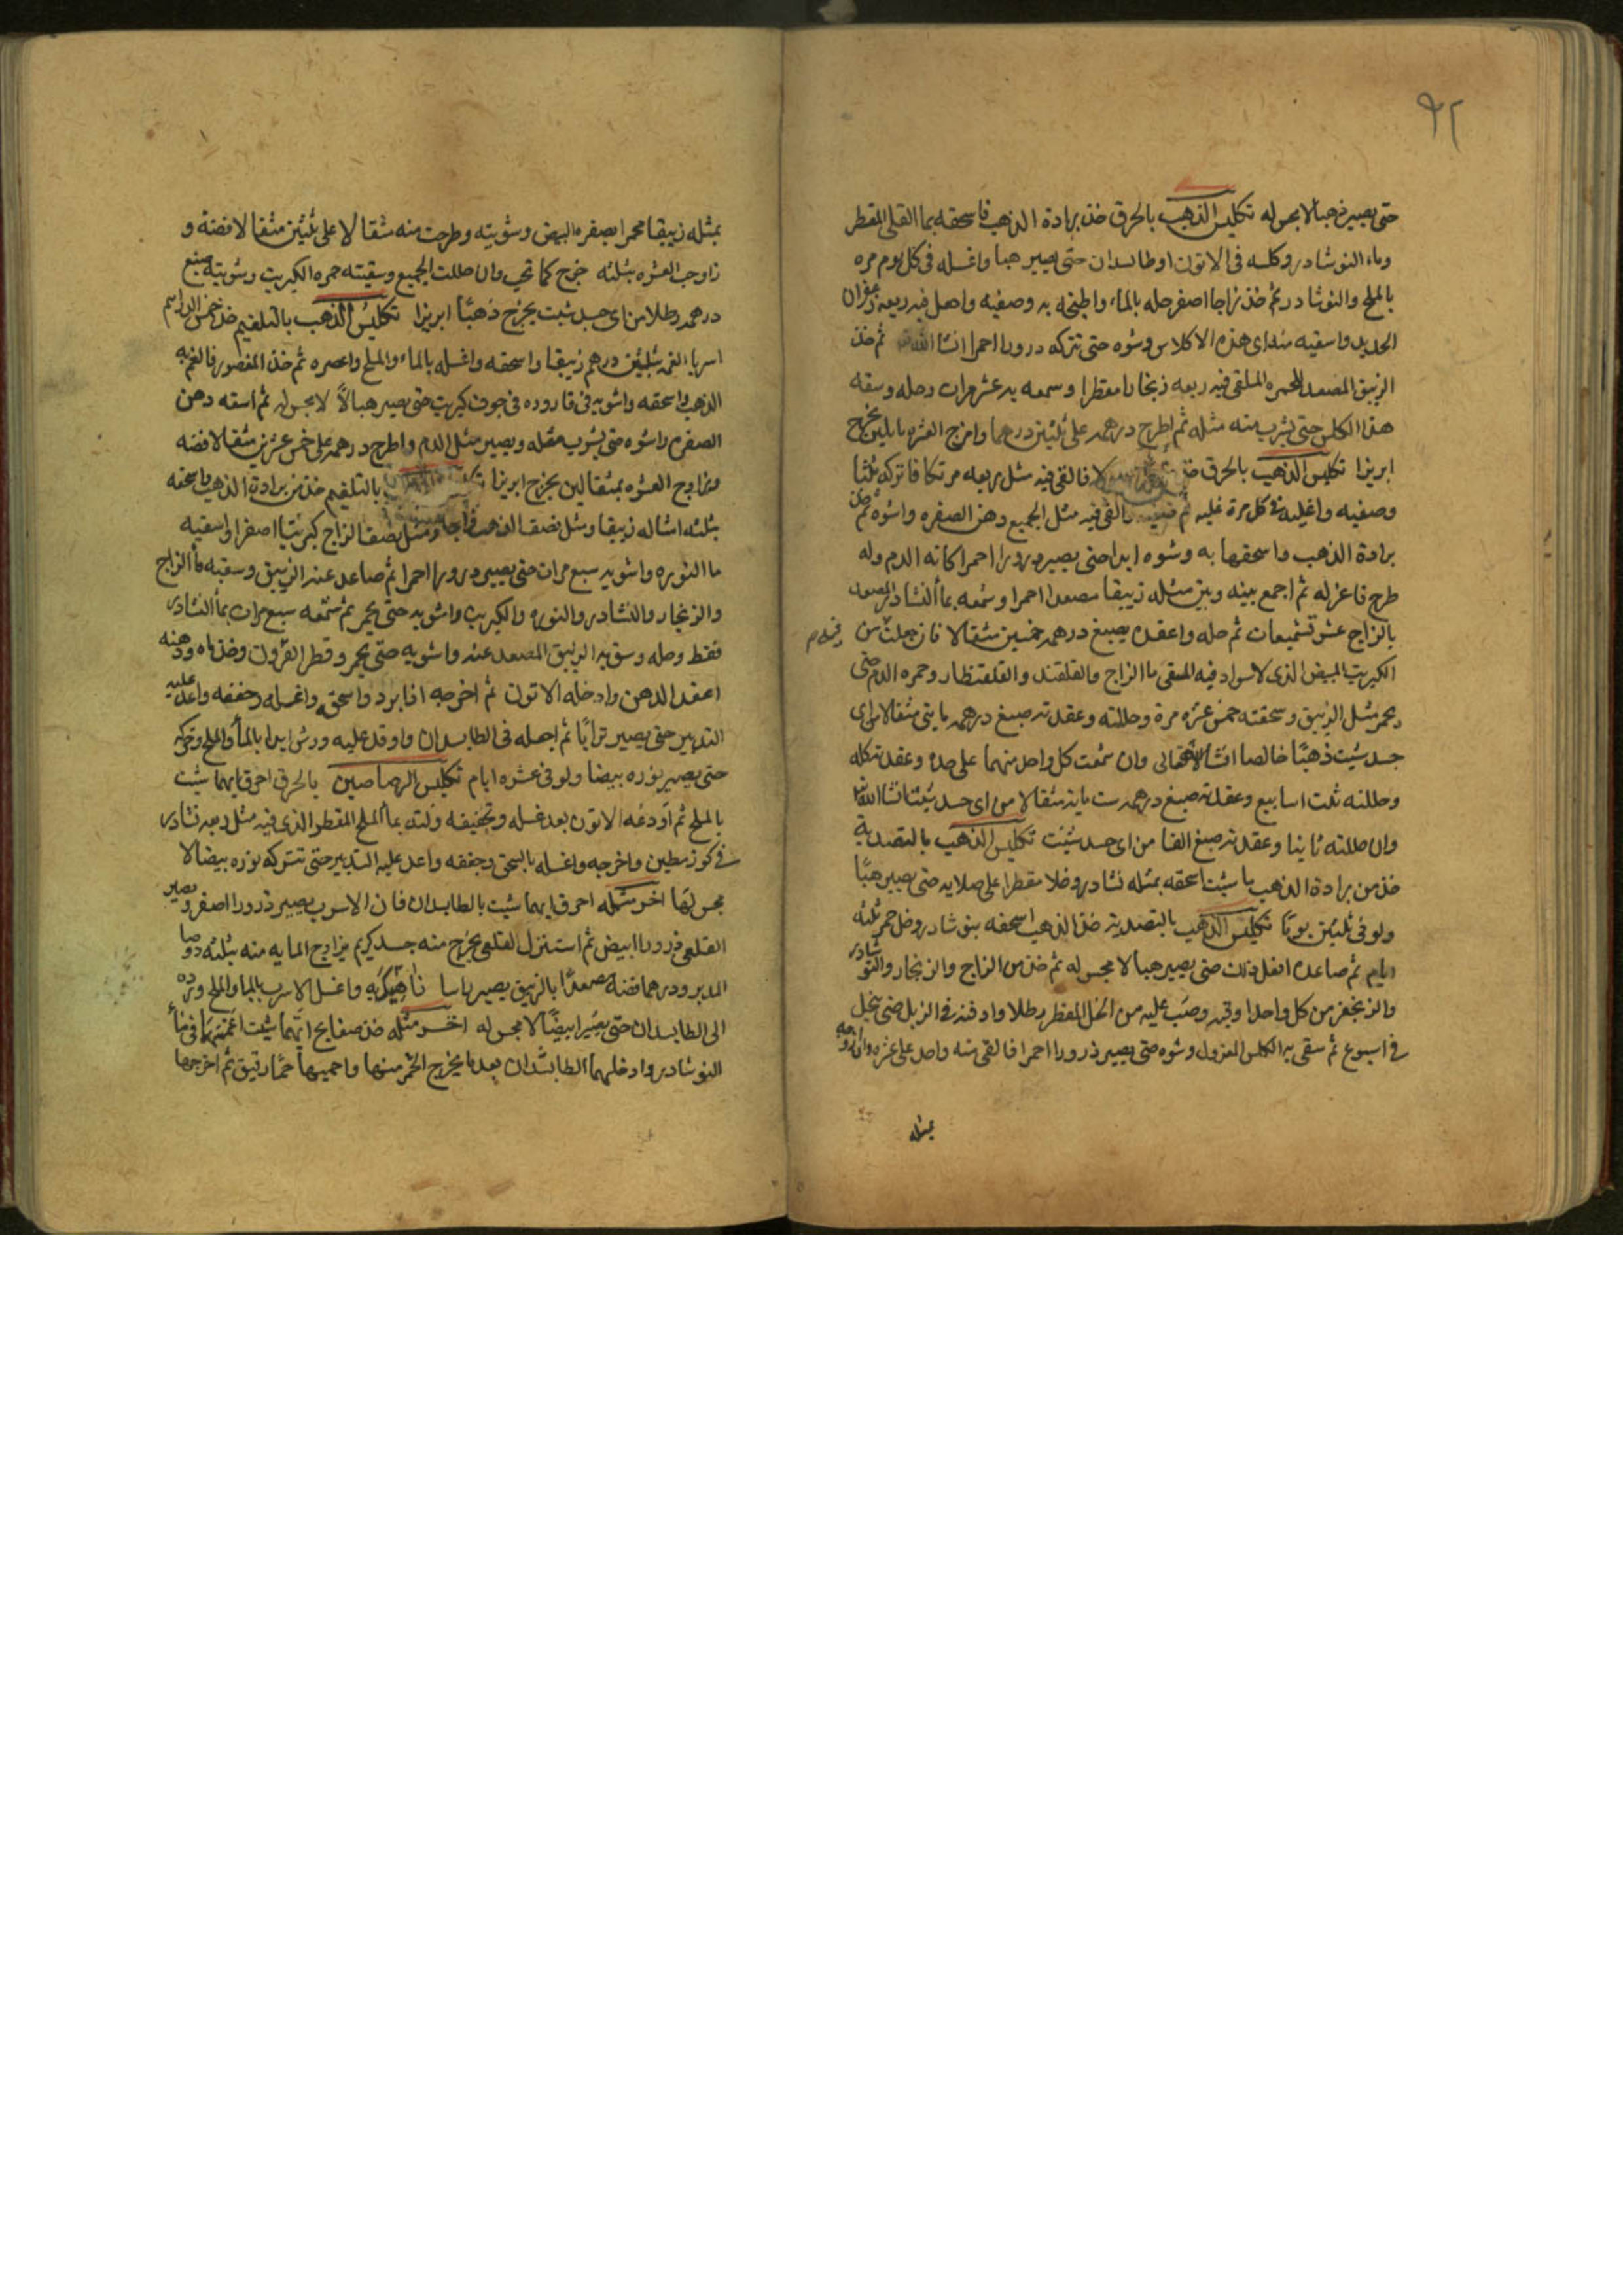 ٩٢
حتى يصير ذهبا لا يحوله تكليس الذهب بالحرق خذ برادة الذهب فاسحقه بما القلى المقطر
وماء النوشادر وكلسه فى الاتون او طابسدان حتى يصير هبا واغسله فى كل يوم مره
بالملح والنوشادر ثم خذ زاجا اصفر حله بالماء واطبخه به وصفيه واجعل فيه ربعه زعفران
الحديد واسقيه هذه الاكلاس وشوه حتى تتركه درورا احمرا انشا الله ثم خذ
الزيبق المصعد للحمره الملقى فيه ربعه زنجارا مقطرا وسمعه به عشر مرات وحله وسقه
هذا الكلس حتى يشرب منه مثله ثم اطرح درهمه على ثلثين درهما وامزج العشره
ابريزا تكليس الذهب بالحرق خذ فالقى فيه مثل ربعه مرتكا فاتركه ثلثا
وصفيه واغليه فى كل مرة غليه ثم والقى فيه مثل الجميع دهن الصفره واشوه ثم خذ
برادة الذهب واسحقها به وشوه ابدا حتى يصير درورا احمرا كانه الدم وله
طرح فاعزله ثم اجمع بينه وبين مثله زيبقا مصعدا احمرا وشمعه بما النشادر المصعد
بالزاج عشر تشميعات ثم حله واعقده يصبغ درهمه خمسين مثقالا فان جعلت من
الكبريت المبيض الذى لا سواد فيه المسقى ما الزاج والقلقند والقلقنطار وحمره الدم حتى
يحمر مثل الزيبق وسحقته خمس عشره مرة وحللته وعقدته صبغ درهمه مايتى مثقالا من اى
جسد شيت ذهبًا خالصا انشا الله تعالى وان شمعت كل واحد منهما على حده وعقدته كله
وحللته ثلث اسابيع وعقدته صبغ درهمه ست ماية مثقالا من اى جسد شيت انشا الله
وان حللته ثانيا وعقدته صبغ الفا من اى جسد شيت تكليس الذهب بالتصدية
خذ من برادة الذهب ما شيت اسحقه بمثله نشادر وخلا مقطرا على صلايه حتى يصير هبًا
ولو فى ثلثين يومًا تكليس الذهب بالتصدية خذ الذهب اسحقه بنوشادر وخل خمر ثلثه
ايام ثم صاعده افعل ذلك حتى يصير هبا لا مجس له ثم خذ من الزاج والزنجار والنوشادر
والزنجفر من كل واحد اوقيه وصب عليه من الخل المقطر رطلا وادفنه فى الزبل حتى ينحل
فى اسبوع ثم سقى به الكلس المعزول وشوه حتى يصير ذرورا احمرا فالقى منه واحد على عشره
بمثله
بمثله زيبقا محمرا بصفره البيض وشويته وطرحت منه مثقالا على ثلثين مثقالا فضة و
زاوجت العشره بثلثه خرج كما تحب وان حللت الجميع وسقيته حمره الكبريت وشويته صبغ
درهمه رطلا من اى جسد شيت يخرج ذهبًا ابريزا تكليس الذهب بالتلغيم خذ خمس الدراهم
اسربا الغمه بثلثين درهم زيبقا واسحقه واغسله بالماء والملح واعصره ثم خذ المعصور فالغم به
الذهب واسحقه واشويه فى قاروره فى جوف كبريت حتى يصير هبالاً لا مجس له ثم اسقه دهن
الصفره واشوه حتى يشرب مثله ويصير مثل الدم واطرح درهمه على خمس عشرين مثقالا فضه
وتزاوج العشره بمثقالين يخرج ابريزا بالتلغيم خذ من برادة الذهب واسحقه
بثلثه امثاله زيبقا ومثل نصف الذهب زاجا ومثل نصف الزاج كبريتا اصفرا واسقيه
ما النوره واشويه سبع مرات حتى يصير درورا احمرا ثم صاعد عنه الزيبق وسقيه ماء الزاج
والزنجار والنشادر والنوره والكبريت واشويه حتى يحمر ثم شمعه سبع مرات بماء النشادر
فقط وحله وسق به الزيبق المصعد عنه واشويه حتى يحمر وقطر القرون وخذ ماه ودهنه
اعقد الدهن وادخله الاتون ثم اخرجه اذا برد واسحقه واغسله وجففه واعد عليه
التدبير حتى يصير ترابًا ثم اجعله فى الطابسدان واوقد عليه ورش ابدا بالماء والملح وتحركه
حتى يصير نوره بيضا ولو فى عشره ايام تكليس الرصاصين بالحرق احرق ايهما شيت
بالملح ثم اودعه الاتون بعد غسله وتجفيفه ولته بماء الملح المقطر الذى فيه مثل ربعه نشادر
فى كوز مطين واخرجه واغسله بالسحق وجففه واعد عليه التدبير حتى تتركه نوره بيضا لا
مجس لها اخر مثله احرق ايهما شيت بالطابسدان فان الاسرب يصير ذرورا اصفر ويصير
القلعى ذرورا ابيض ثم استنزل القلعى يخرج منه جسد كريم يزاوج المايه منه بثلثه
المدبر ودرهما فضه مصعدًا بالزيبق يصير باسا واغسل الاسرب بالماء والملح ورده
الى الطابسدان حتى يصير ابيضًا لا مجس له اخر مثله خذ صفايح ايهما شيت اغمسها فى ماء
النوشادر وادخلهما الطابسدان بعد ما يخرج الخمر منها واحميها حمًا رقيق ثم اخرجها